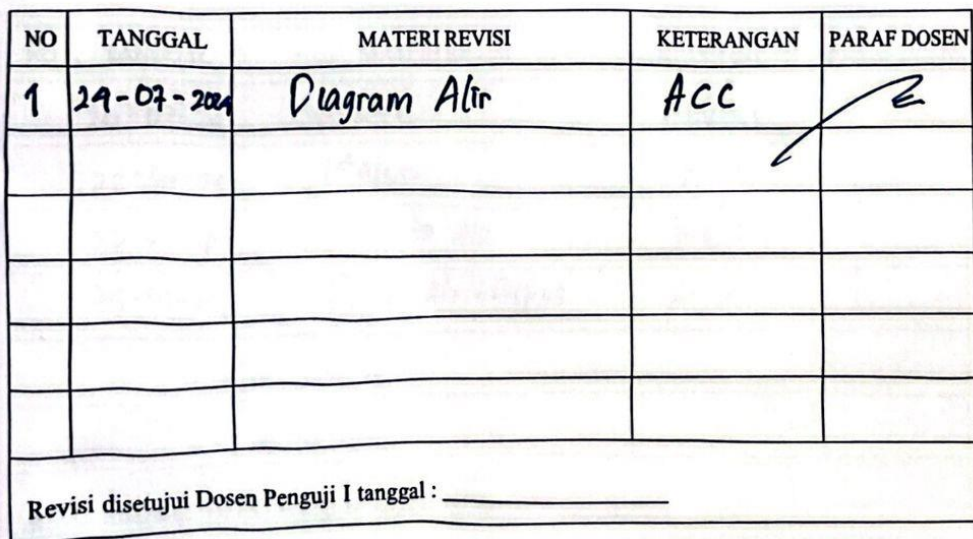 NO TANGGAL MATERI REVISI KETERANGAN PARAF DOSEN
1 24-07-2024 Diagram Alir ACC
Revisi disetujui Dosen Penguji I tanggal :